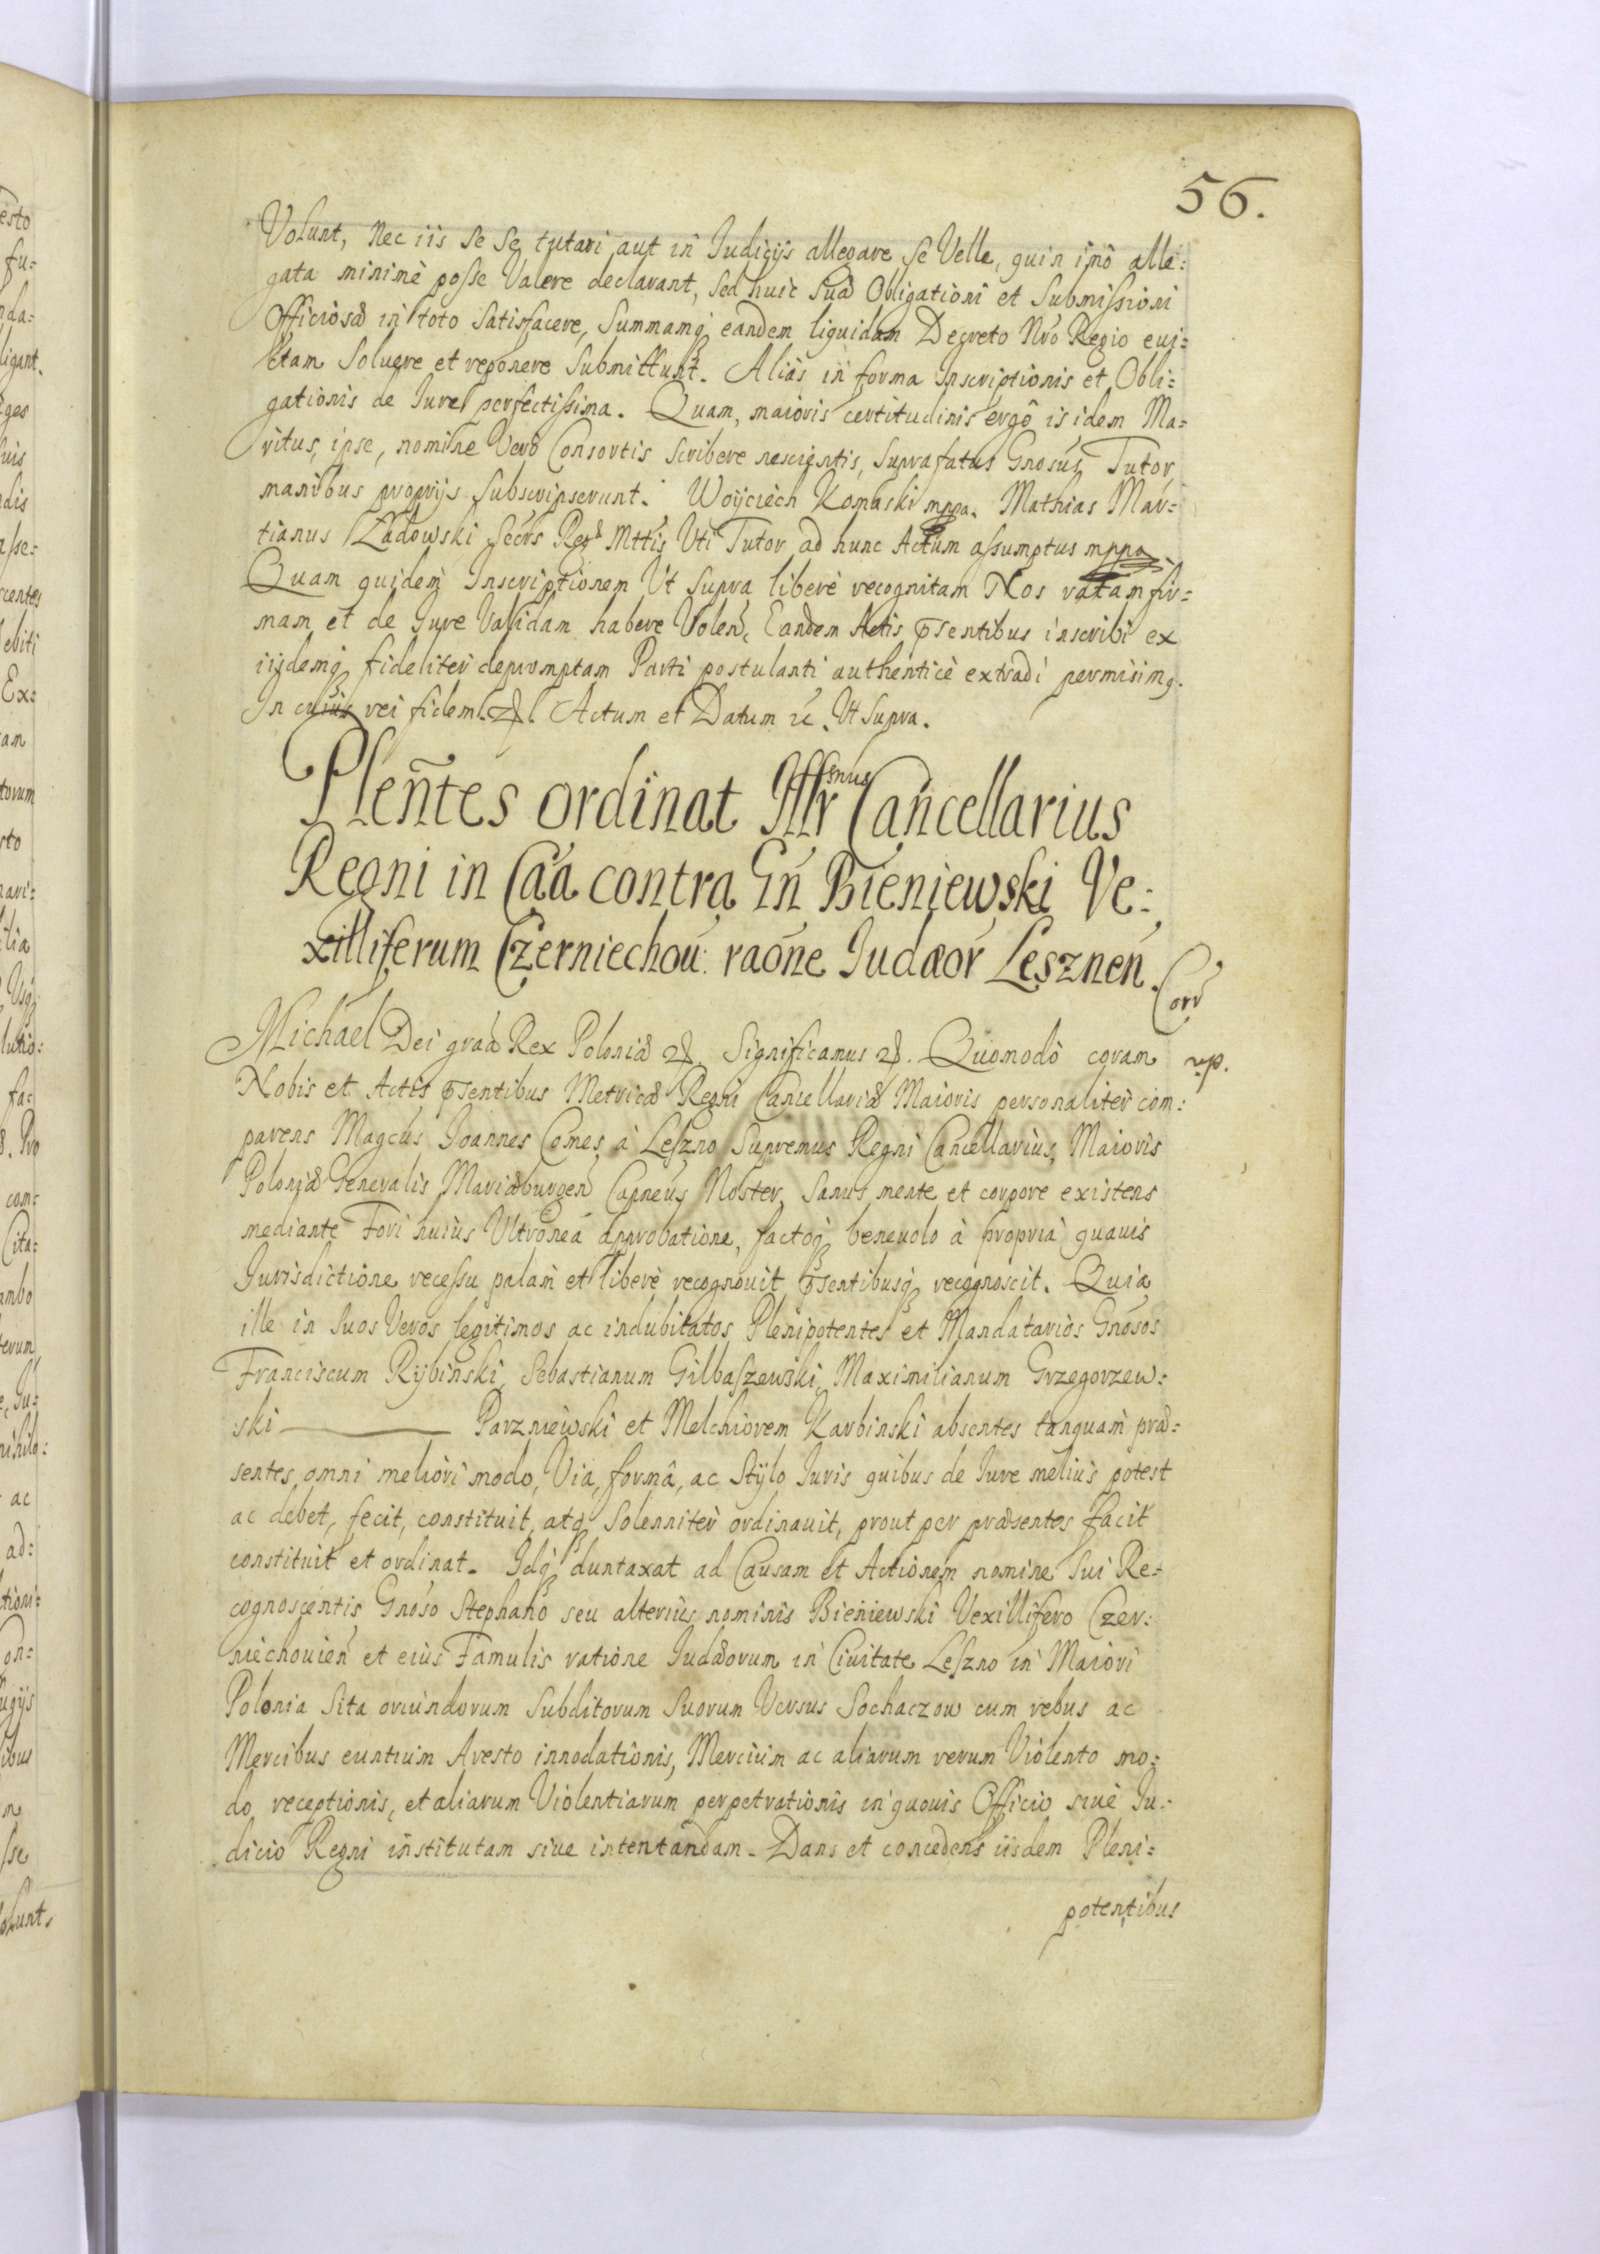 56.
Volunt, Nec iis se se tutari aut in Judicijs allegare se Velle, quin imò alle:
gata minimè posse Valere declarant, sed huic suæ Obligationi et submissioni
Officiosæ in toto satisfacere, summamq; eandem liquidam Decreto Nrõ Regio evi=
ctam soluere et reponere submittunt. Aliàs in forma Inscriptionis et Obli:
gationis de Iure perfectissima. Quam, maioris certitudinis ergô isidem Ma=
ritus, ipse, nomine Verò Consortis scribere nescientis, suprafatus Gnosus Tutor
manibus proprijs subscripserunt. Woÿciech Komaski mppa. Mathias Mar=
tianus Ładowski Secrs Regæ Mttis Uti Tutor ad hunc Actum assumptus mppa.
Quam quidem Inscriptionem Ut supra liberè recognitam Nos ratam fir=
mam et de Iure Validam habere Volen, Eandem Actis p̄sentibus inscribi ex
iisdemq; fideliter depromptam Parti postulanti authenticè extradi permisimq.
In cuius rei fidem &. Actum et Datum &c. Ut supra.
Pleñtes ordinat Illr smus Cancellarius
Regni in Caã contra Gñ Bieniewski Ve:
xilliferum Czerniechoũ: raõne Iudæor Lesznen̄.
Corr
Michael Dei graã Rex Poloniæ &. Significamus &. Quomodò coram
rp.
Nobis et Actis p̄sentibus Metricæ Regni Cancellariæ Maioris personalitèr com:
parens Magcus Joannes Comes à Leszno Supremus Regni Cancellarius, Maioris
Poloniæ Generalis, Mariæburgen̄ Capneus Noster, Sanus mente et corpore existens
mediante Fori huius Ultroneâ approbatione, factoq; beneuolo à propriâ quauis
Jurisdictione recessu palàm et liberè recognouit p̄sentibusq; recognoscit. Quia
ille in suos Veros legitimos ac indubitatos Plenipotentes et Mandatarios Gnosos
Franciscum Rÿbiński, Sebastianum Gilbaszewski, Maximilianum Grzegorzew:
ski ——— Parzniewski et Melchiorem Karbinski absentes tanquam præ=
sentes, omni meliori modo, Via, formâ, ac Stÿlo Iuris quibus de Iure meliùs potest
ac debet, fecit, constituit, atq; Solennitèr ordinauit, prout per præsentes facit
constituit et ordinat. Idq; duntaxat ad Causam et Actionem nomine Sui Re=
cognoscentis Gnoso Stephano seu alterius nominis Bieniewski Vexillifero Czer:
niechouien̄ et eius Famulis ratione Iudæorum in Ciuitate Leszno in Maiori
Polonia Sita oriundorum Subditorum Suorum Versus Sochaczow cum rebus ac
Mercibus euntium Aresto innodationis, Mercium ac aliarum rerum Violento mo=
do receptionis, et aliarum Violentiarum perpetrationis in quouis Officio siuè Iu=
dicio Regni institutam siue intentandam. Dans et concedens iisdem Pleni=
potentibus